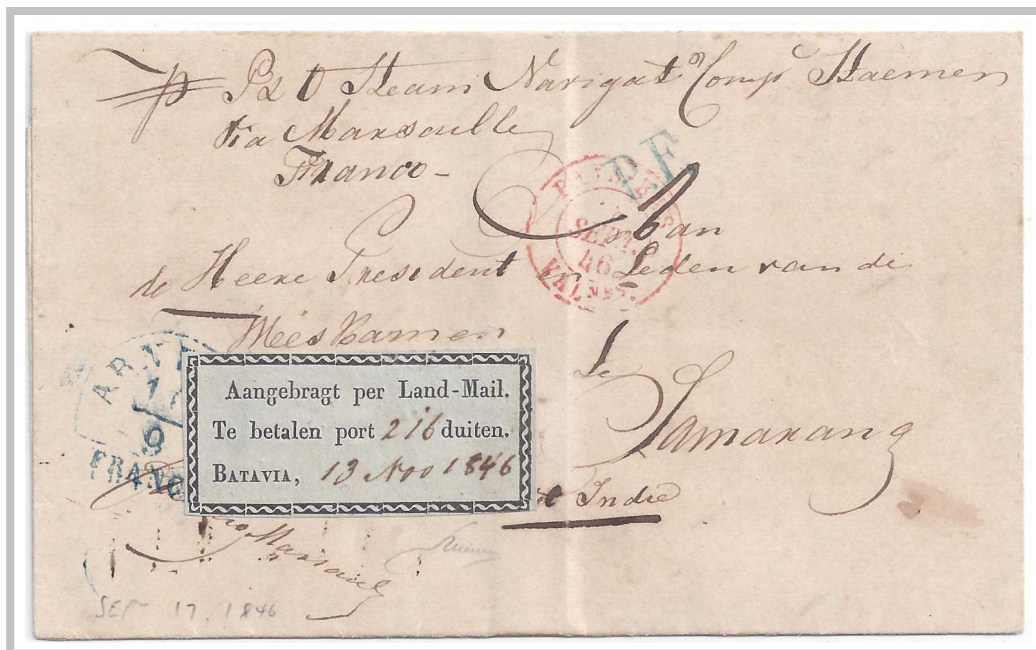 p P & O Steam Navigat Comp Staemer
via Marseille
Franco -
P.F.
SEPT.
46
VALNES.
Aan
de Heere President en Leden van de
Weeskamer
te
Samarang
ARN
9
FRANCO
Aangebragt per Land-Mail.
Te betalen port 216 duiten.
BATAVIA, 13 Nov 1846
Indie
Marseille
SEPT 17, 1846